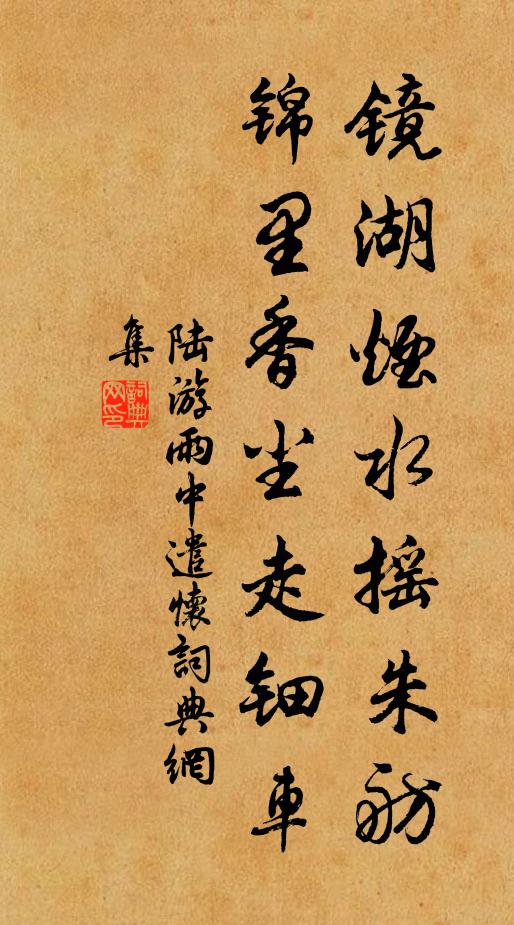 镜湖烟水摇朱舫
锦里香尘走钿车
陆游雨中遣懷詞典網
集
詞典网印